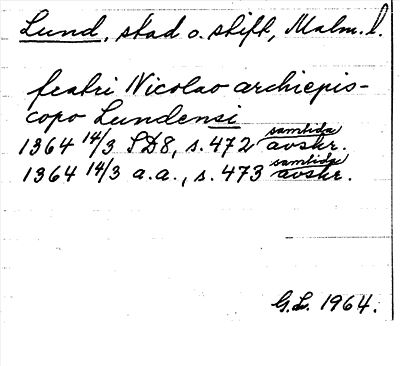 Lund, stad o. stift, Malm. l.
fratri Nicolao archiepis-
copo Lundensi
1364 14/3 SD8, s. 472 samtida avskr.
1364 14/3 a.a., s. 473 samtida avskr.
G.L. 1964.